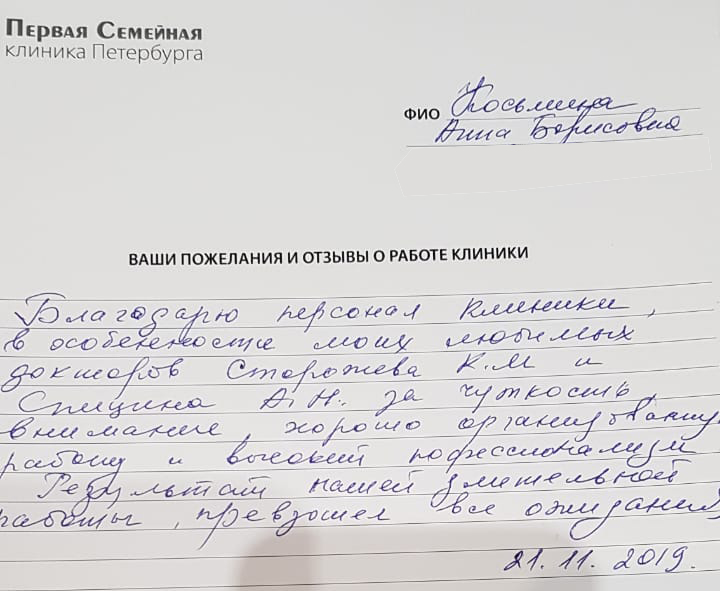 ПЕРВАЯ СЕМЕЙНАЯ
клиника Петербурга
ФИО Косьмина
Анна Борисовна
ВАШИ ПОЖЕЛАНИЯ И ОТЗЫВЫ О РАБОТЕ КЛИНИКИ
Благодарю персонал клиники,
в особенности моих любимых
докторов Сторожева К.М и
Спицина А.Н. за чуткость,
внимание, хорошо организованную
работу и высокий пофессионализм
Результат нашей длительной
работы, превзошел все ожидания
21.11.2019.